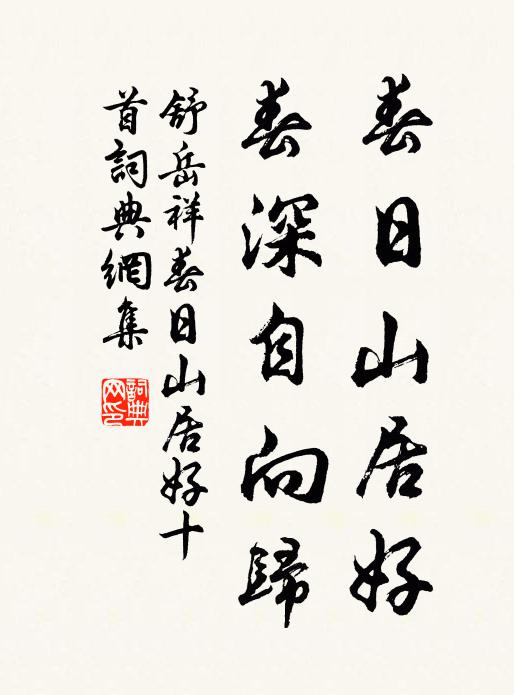 春日山居好
春深自向歸
舒岳祥春日山居好十
首詞典網集
詞典网印